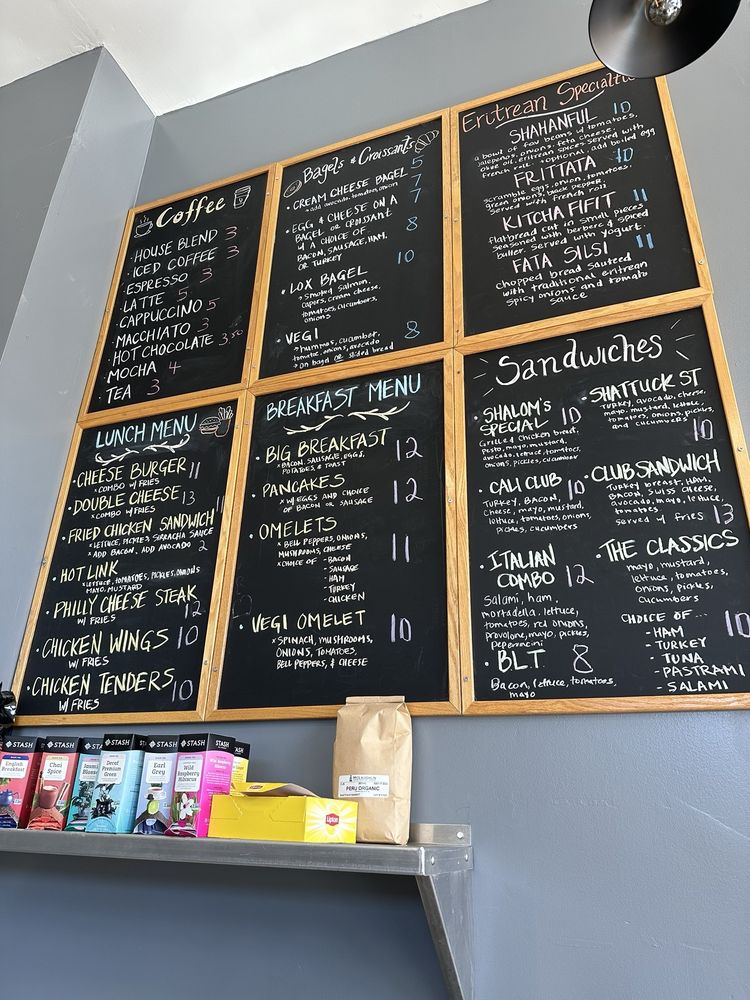 Coffee
HOUSE BLEND 3
ICED COFFEE 3
ESPRESSO 3
LATTE 5
CAPPUCCINO 5
MACCHIATO 3
HOT CHOCOLATE 3.50
MOCHA 4
TEA 3
Bagels & Croissants
CREAM CHEESE BAGEL 5
x add avocado, tomato, onion 7
EGG & CHEESE ON A 7
BAGEL OR CROISSANT
W/ A CHOICE OF 8
BACON, SAUSAGE, HAM,
OR TURKEY
LOX BAGEL 10
→ Smoked Salmon,
capers, cream cheese,
tomatoes, cucumbers,
onions
VEGI 8
→ hummus, cucumber,
tomato, onions, avocado
→ on bagel or sliced bread
Eritrean Specialti
SHAHANFUL 10
a bowl of fav beans w/ tomatoes,
jalapeños, onions, feta cheese,
olive oil, eritrean spices served with
french roll. *optional, add boiled egg
FRITTATA 10
scramble eggs, onion, tomatoes,
green onions, black pepper,
served with french roll
KITCHA FIFIT 11
flatbread cut in small pieces
seasoned with berbere & spiced
butter. Served with yogurt.
FATA SILSI 11
chopped bread sauteed
with traditional eritrean
spicy onions and tomato
sauce
LUNCH MENU
CHEESE BURGER 11
x COMBO W/ FRIES
DOUBLE CHEESE 13
x COMBO W/ FRIES
FRIED CHICKEN SANDWICH 11
x LETTUCE, PICKLES, SIRRACHA SAUCE
x ADD BACON, ADD AVOCADO 2
HOT LINK
x LETTUCE, TOMATOES, PICKLES, ONIONS
MAYO, MUSTARD
PHILLY CHEESE STEAK
W/ FRIES 12
CHICKEN WINGS 10
W/ FRIES
CHICKEN TENDERS 10
W/ FRIES
BREAKFAST MENU
BIG BREAKFAST 12
x BACON, SAUSAGE, EGGS,
POTATOES, & TOAST
PANCAKES 12
x W/ EGGS AND CHOICE
OF BACON OR SAUSAGE
OMELETS 11
x BELL PEPPERS, ONIONS,
MUSHROOMS, CHEESE
x CHOICE OF - BACON
- SAUSAGE
- HAM
- TURKEY
- CHICKEN
VEGI OMELET 10
x SPINACH, MUSHROOMS,
ONIONS, TOMATOES,
BELL PEPPERS, & CHEESE
Sandwiches
SHALOM'S
SPECIAL 10
Grilled chicken breast,
pesto, mayo, mustard,
avocado, lettuce, tomatoes,
onions, pickles, cucumber
CALI CLUB 10
TURKEY, BACON,
cheese, mayo, mustard,
lettuce, tomatoes, onions,
pickles, cucumbers
ITALIAN
COMBO 12
Salami, ham,
mortadella, lettuce,
tomatoes, red onions,
provolone, mayo, pickles,
pepperoncini
BLT 8
Bacon, lettuce, tomatoes,
mayo
SHATTUCK ST
Turkey, avocado, cheese,
mayo, mustard, lettuce,
tomatoes, onions, pickles,
and cucumbers
10
CLUB SANDWICH
Turkey breast, HAM,
BACON, Swiss cheese,
avocado, mayo, lettuce,
tomatoes.
Served w/ fries 13
THE CLASSICS
mayo, mustard,
lettuce, tomatoes,
onions, pickles,
cucumbers
CHOICE OF...
- HAM 10
- TURKEY
- TUNA
- PASTRAMI
- SALAMI
STASH
English
Breakfast
STASH
Chai
Spice
STASH
STASH
Decaf
Premium
Green
STASH
Earl
Grey
STASH
Wild
Raspberry
Hibiscus
Lipton
PERU ORGANIC